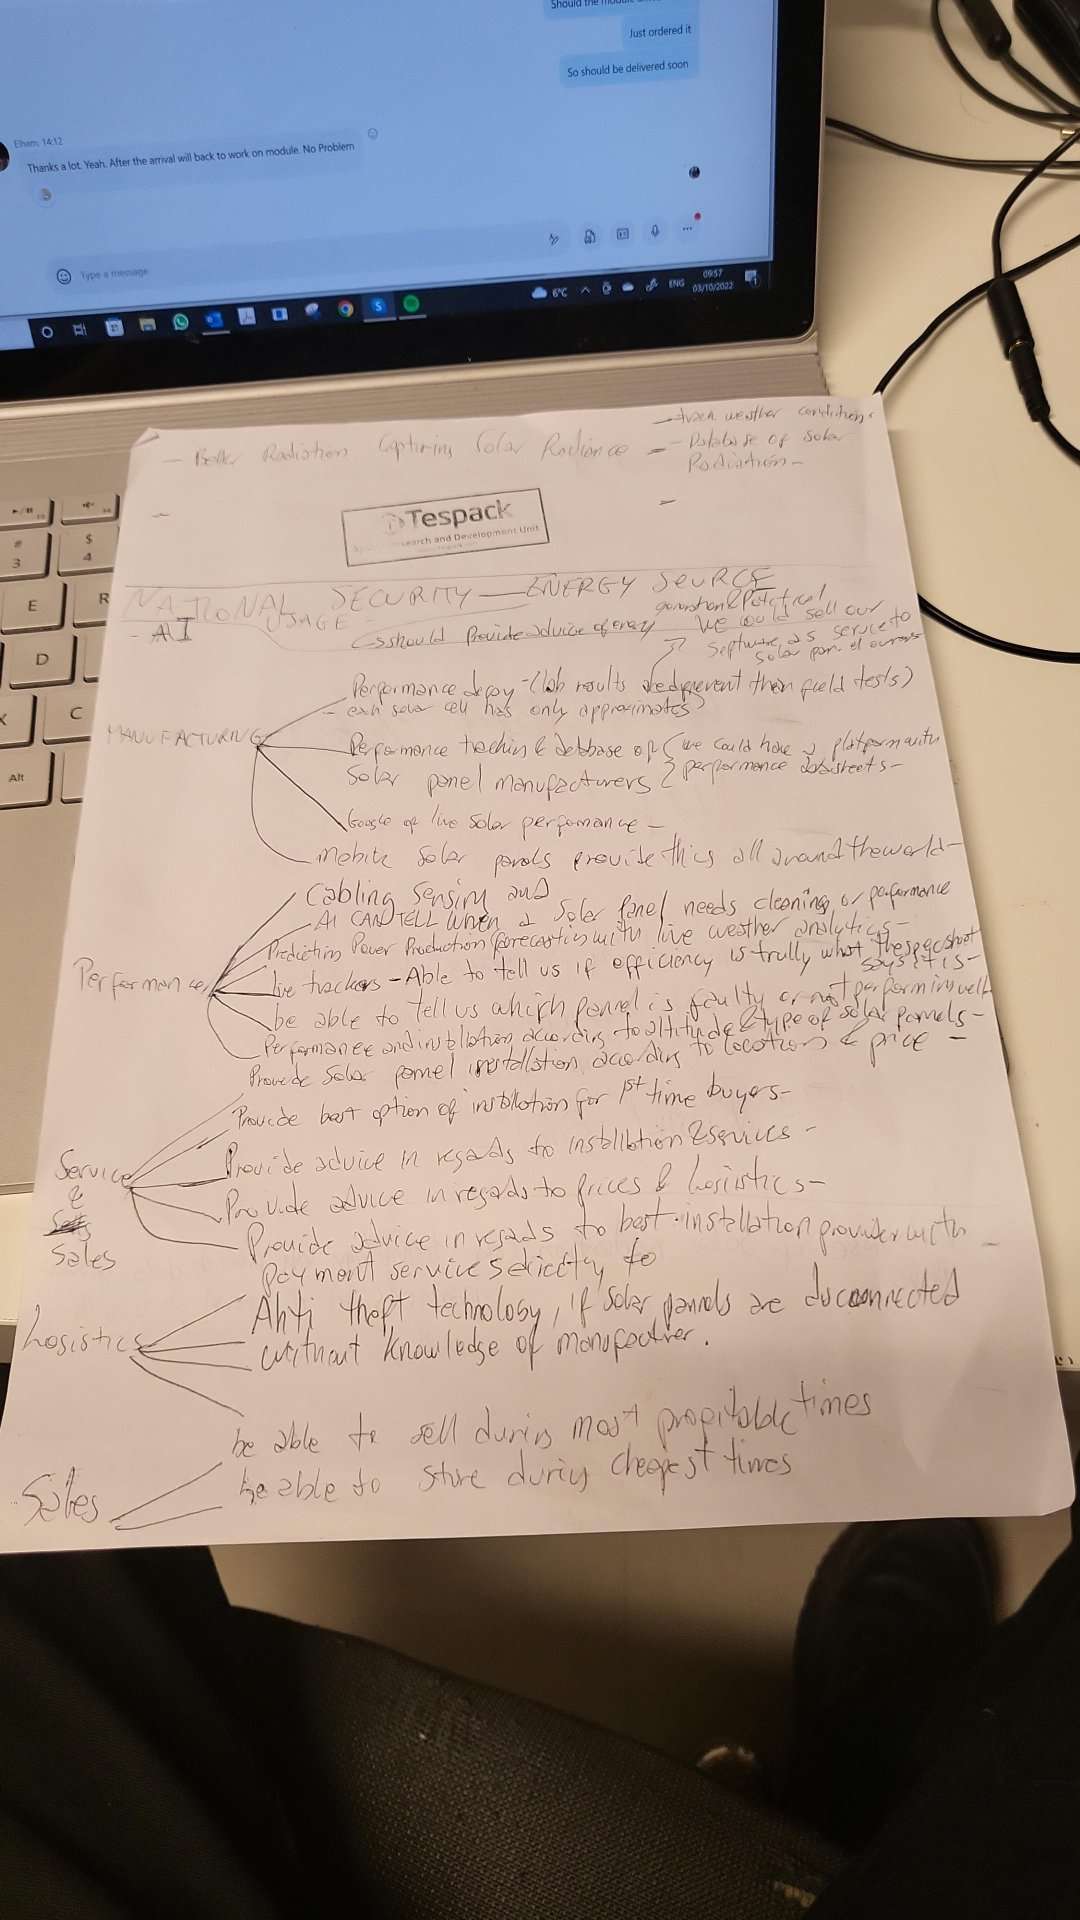 Should the module
Just ordered it
So should be delivered soon
Elham, 14:12
Thanks a lot. Yeah. After the arrival will back to work on module. No Problem
Type a message
6°C
ENG
09:57
03/10/2022
3
$
4
E
R
D
X
C
Alt
- Better Radiation Capturing Solar Radiance -
weather conditions
- Database of solar
Radiation -
Tespack
search and Development Unit
NATIONAL SECURITY — ENERGY SOURCE
- AI
USAGE
should provide advice of energy
generation & potential
We could sell our
software as service to
solar panel owners
MANUFACTURING
Performance decay - (lab results are different than field tests)
- each solar cell has only approximates
Performance tracking & database of
solar panel manufacturers
we could have a platform with
performance datasheets -
Google of live solar performance -
Mobile solar panels provide this all around the world -
Performance
Cabling sensing and
AI CAN TELL WHEN a solar panel needs cleaning or performance
Predicting Power Production (forecasting with live weather analytics -
live trackers - Able to tell us if efficiency is trully what the spec sheet
says it is -
be able to tell us which pannel is faulty or not performing well
Performance and installation according to altitude & type of solar pannels -
Service
&
Sales
Provide solar pannel installation according to locations & price -
Provide best option of installation for 1st time buyers -
Provide advice in regards to installation & services -
Provide advice in regards to prices & logistics -
Provide advice in regards to best installation provider with -
payment services directly to
Logistics
Anti theft technology, if solar pannels are disconnected
without knowledge of
Sales
be able to sell during most profitable times
be able to store during cheapest times